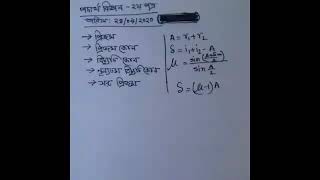 পদার্থ বিজ্ঞান - ২য় পত্র
তারিখ: ২৪/০৫/২০২০
→ প্রিজম
→ প্রিজম কোন
→ বিচ্যুতি কোন
→ ন্যূনতম বিচ্যুতি কোন
→ সরু প্রিজম
A = r₁ + r₂
δ = i₁ + i₂ - A
μ = sin (A+δm)/2 / sin A/2
δ = (μ-1) A